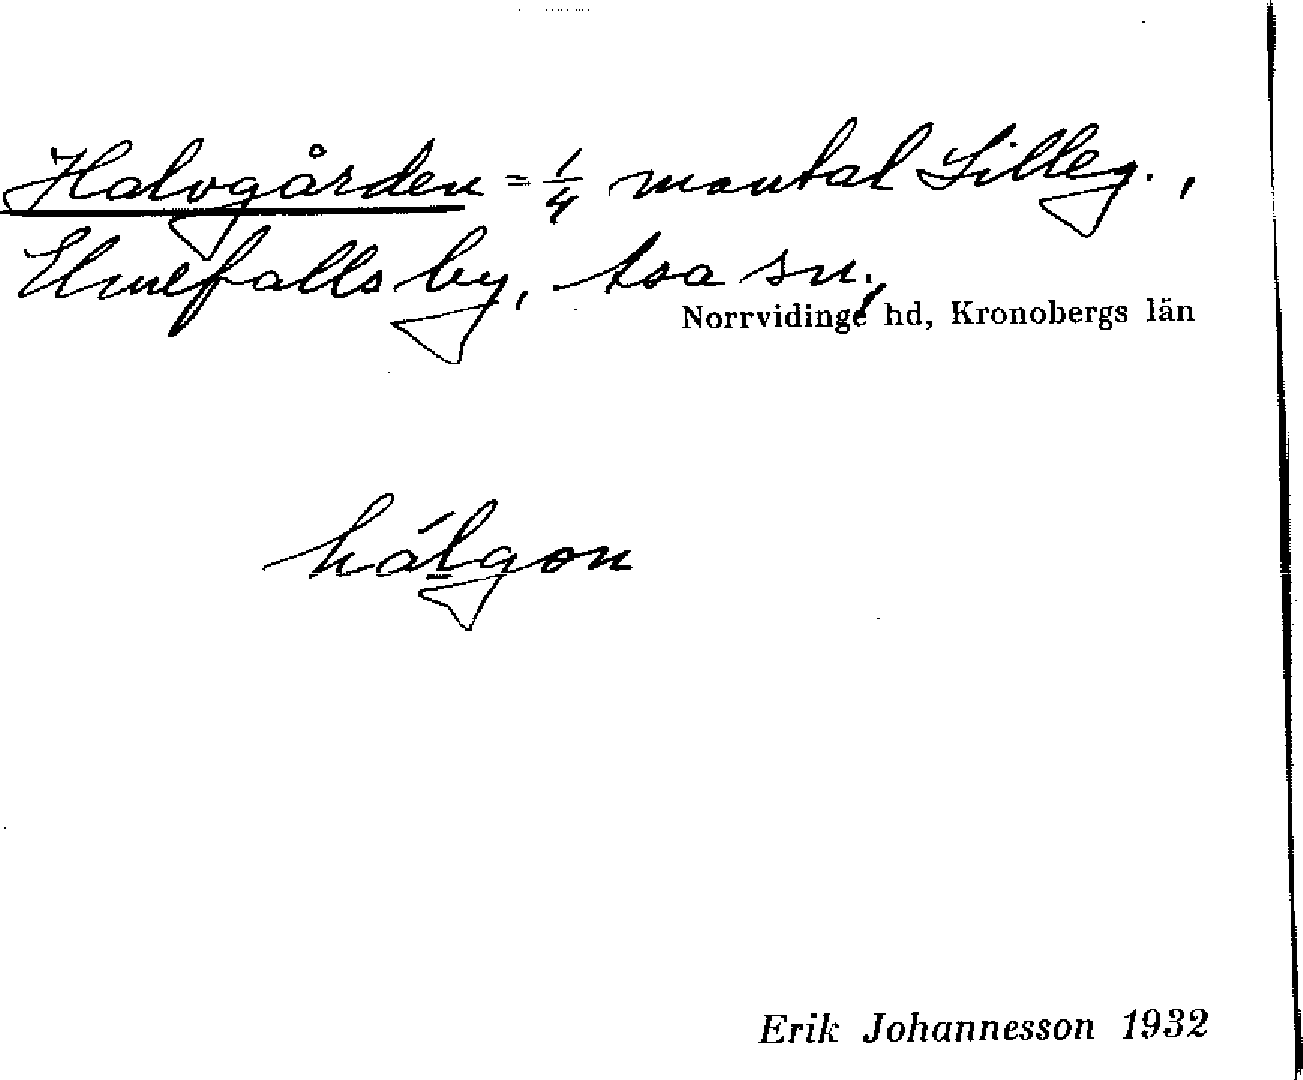 Halvgården = 1/4 mantal Lilleg.,
Elmefalls by, tsa sn.,
Norrvidinge hd, Kronobergs län
hálgon
Erik Johannesson 1932